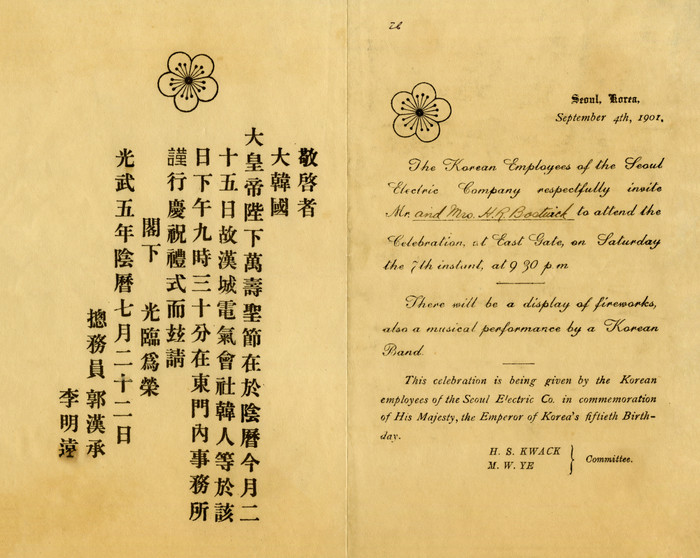 敬啓者
大韓國
大皇帝陛下萬壽聖節在於陰曆今月二
十五日故漢城電氣會社韓人等於該
日下午九時三十分在東門內事務所
謹行慶祝禮式而玆請
閣下 光臨爲榮
光武五年陰曆七月二十二日
摠務員 郭漢承
李明遠
Seoul, Korea,
September 4th, 1901.
The Korean Employees of the Seoul
Electric Company respectfully invite
Mr. and Mrs. H.R. Bostwick to attend the
Celebration, at East Gate, on Saturday
the 7th instant, at 9 30 p.m
There will be a display of fireworks,
also a musical performance by a Korean
Band.
This celebration is being given by the Korean
employees of the Seoul Electric Co. in commemoration
of His Majesty, the Emperor of Korea's fiftieth Birth-
day.
H. S. KWACK
M. W. YE
Committee.